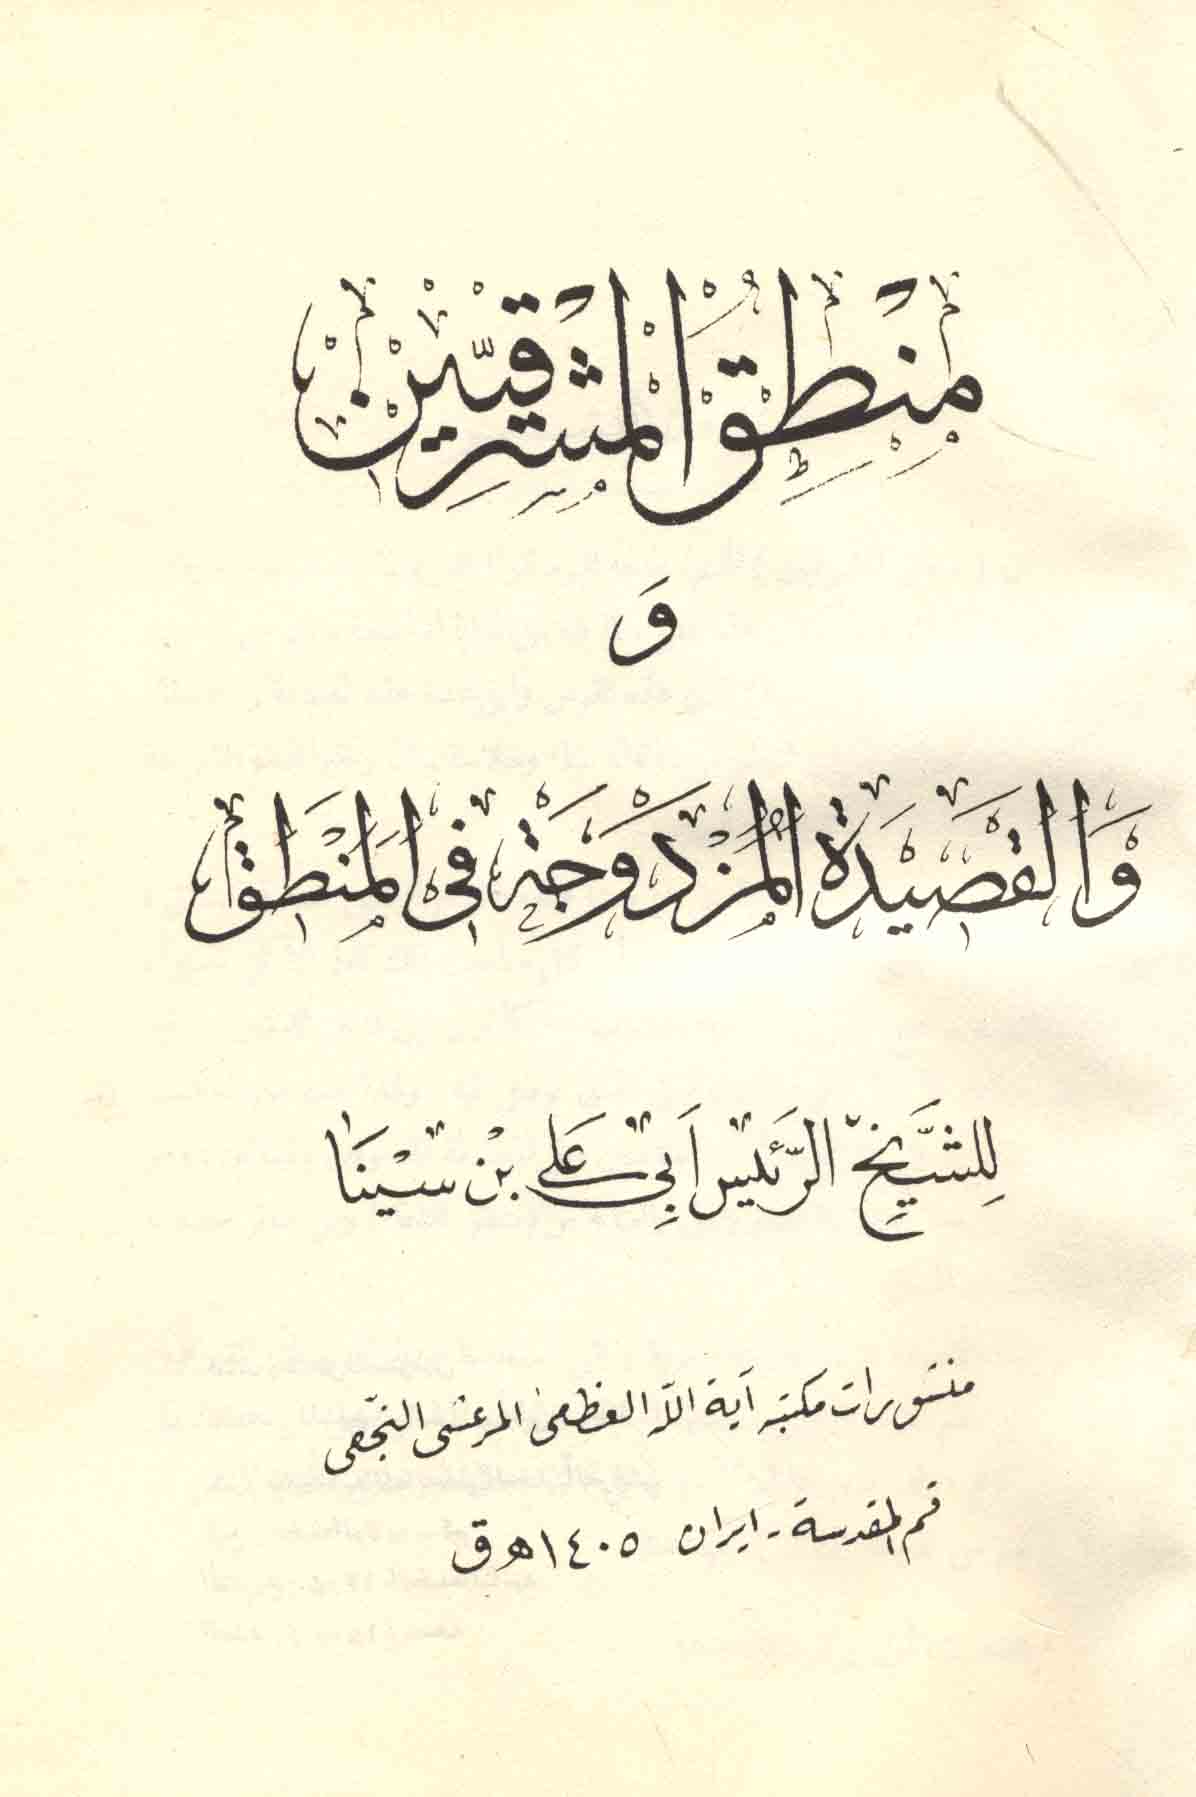 مَنْطِقُ المَشْرِقِيّينَ
وَ
وَالقَصِيْدَةُ المُزْدَوَجَة فى المَنْطِق
لِلشَّيْخِ الرَّئيس اَبِى عَلى بْن سيْنَا
منشورات مكتبة آية الله العظمى المرعشى النّجفى
قم المقدسة - ايران ١٤٠٥ هـ ق